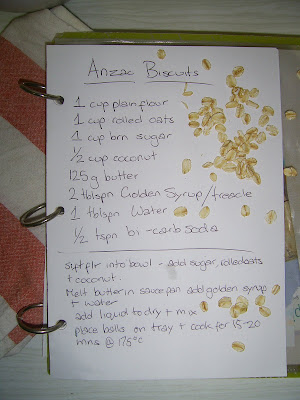 Anzac Biscuits
1 cup plain flour
1 cup rolled oats
1 cup brn sugar
1/2 cup coconut
125g butter
2 tblspn Golden Syrup/treacle
1 tblspn Water
1/2 tspn bi-carb soda
Syft flr into bowl - add sugar, rolled oats
+ coconut.
Melt butter in sauce pan add golden syrup
+ water
add liquid to dry + mix
place balls on tray + cook for 15-20
mns @ 175°c